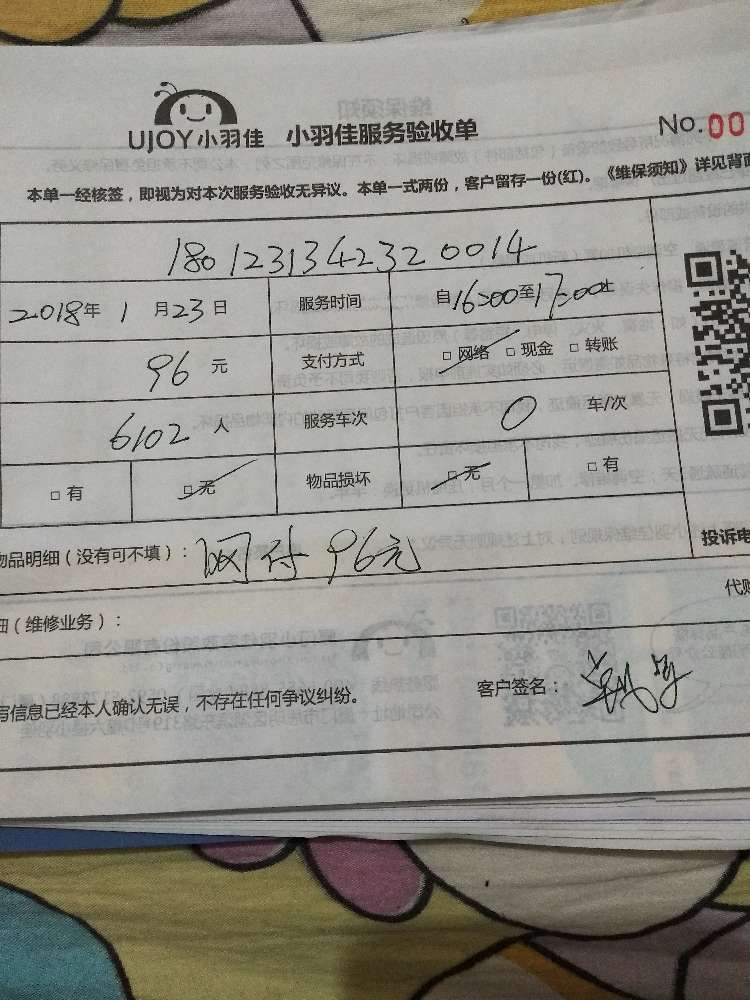 UJOY小羽佳 小羽佳服务验收单
No.00
本单一经核签，即视为对本次服务验收无异议。本单一式两份，客户留存一份(红)。《维保须知》详见背面
1801231342320014
2018年1月23日 服务时间 自16:00至17:00止
96元 支付方式 □网络 □现金 □转账
6102人 服务车次 0 车/次
□有 □无 物品损坏 □无 □有
物品明细（没有可不填）：网付96元
投诉电
代购
细（维修业务）：
写信息已经本人确认无误，不存在任何争议纠纷。 客户签名：